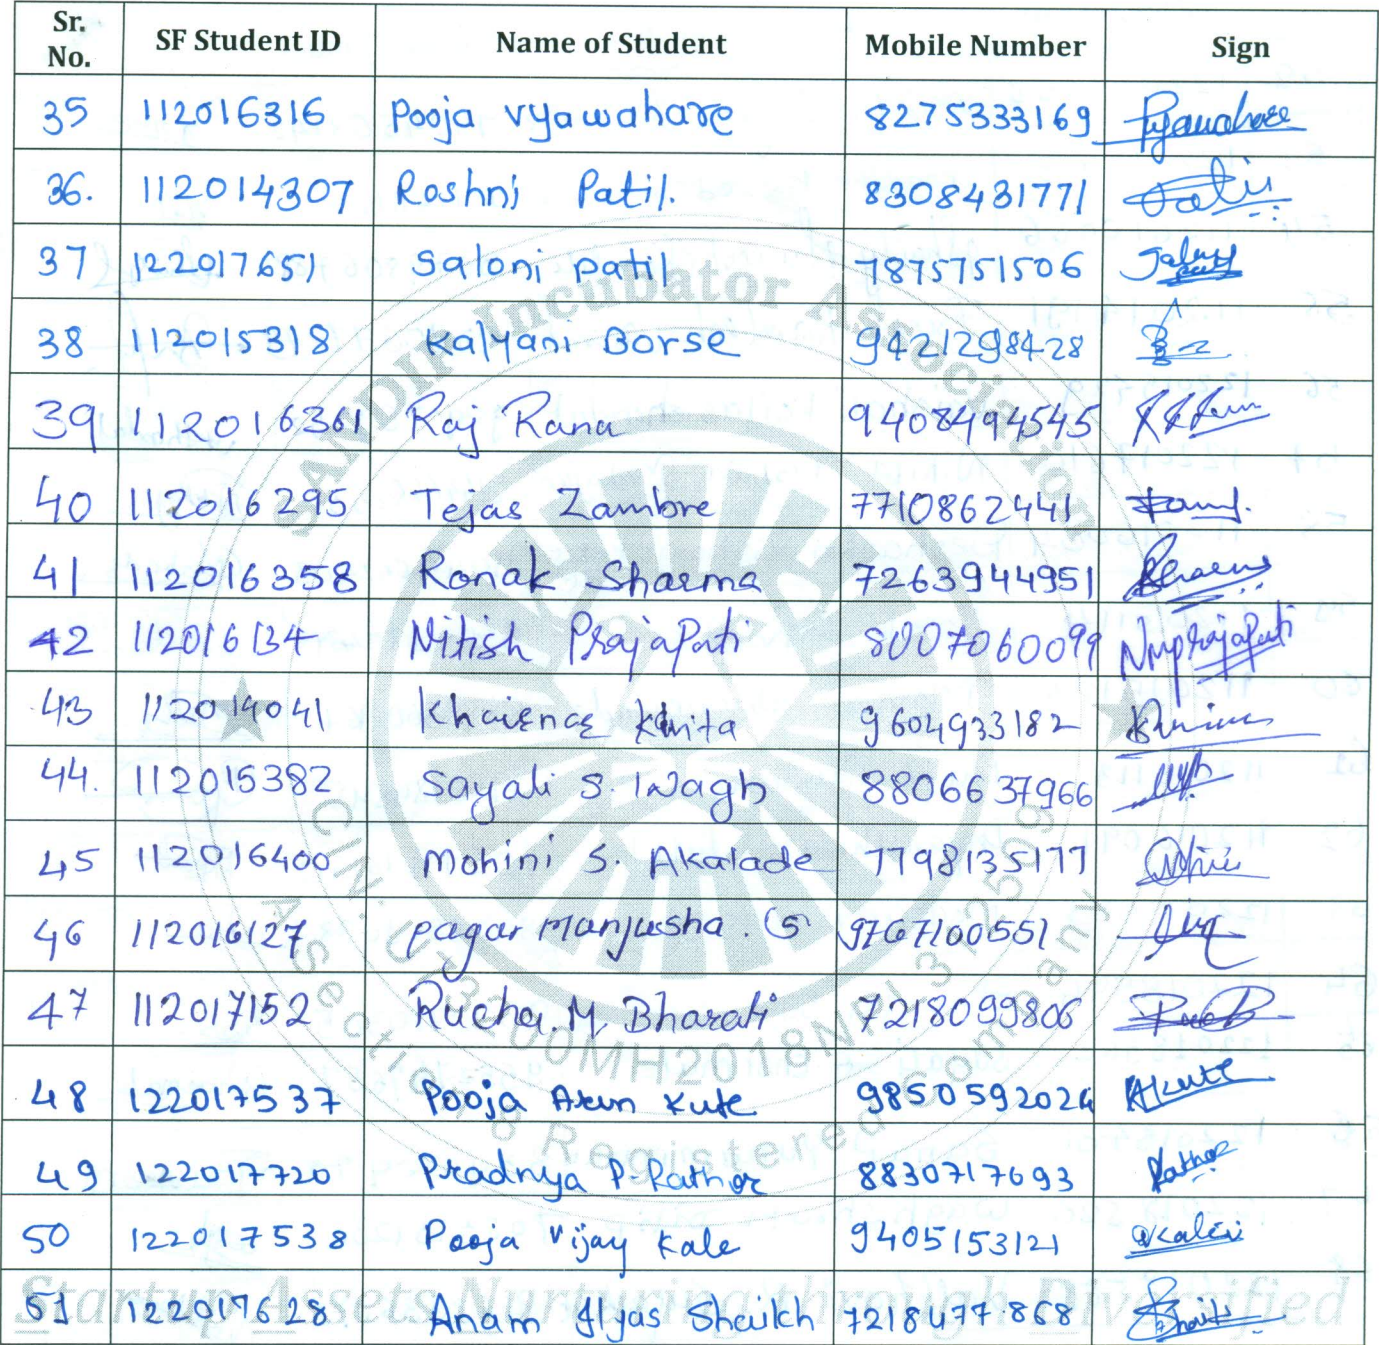 Sr. No. SF Student ID Name of Student Mobile Number Sign
35 112016316 Pooja Vyawahare 8275333169 Pyawahare
36. 112014307 Roshni Patil. 8308431771 Patil
37 122017651 Saloni Patil 7875751506
38 112015318 Kalyani Borse 9421298428
39 112016361 Raj Rana 9408494545
40 112016295 Tejas Zambre 7710862441
41 112016358 Ronak Sharma 7263944951
42 112016134 Nitish Prajapati 8007060099 Nmprajapati
43 112014041 Khairnar 9604933182
44. 112015382 Sayali S. Wagh 8806637966
45 112016400 Mohini S. Akalade 7798135177
46 112016127 pagar Manjusha . G 9767100551
47 112017152 Rucha. M. Bharati 7218099806
48 122017537 Pooja Arun Kute 9850592024 AKute
49 122017720 Pradnya P. Rathor 8830717693 Rathor
50 122017538 Pooja Vijay Kale 9405153121
51 122017628 Anam Ilyas Shaikh 7218477868
SANDIP Incubator Association
CIN: MH2018NPL312509
A Section 8 Registered Company
Startup Assets Nurturing through Diversified